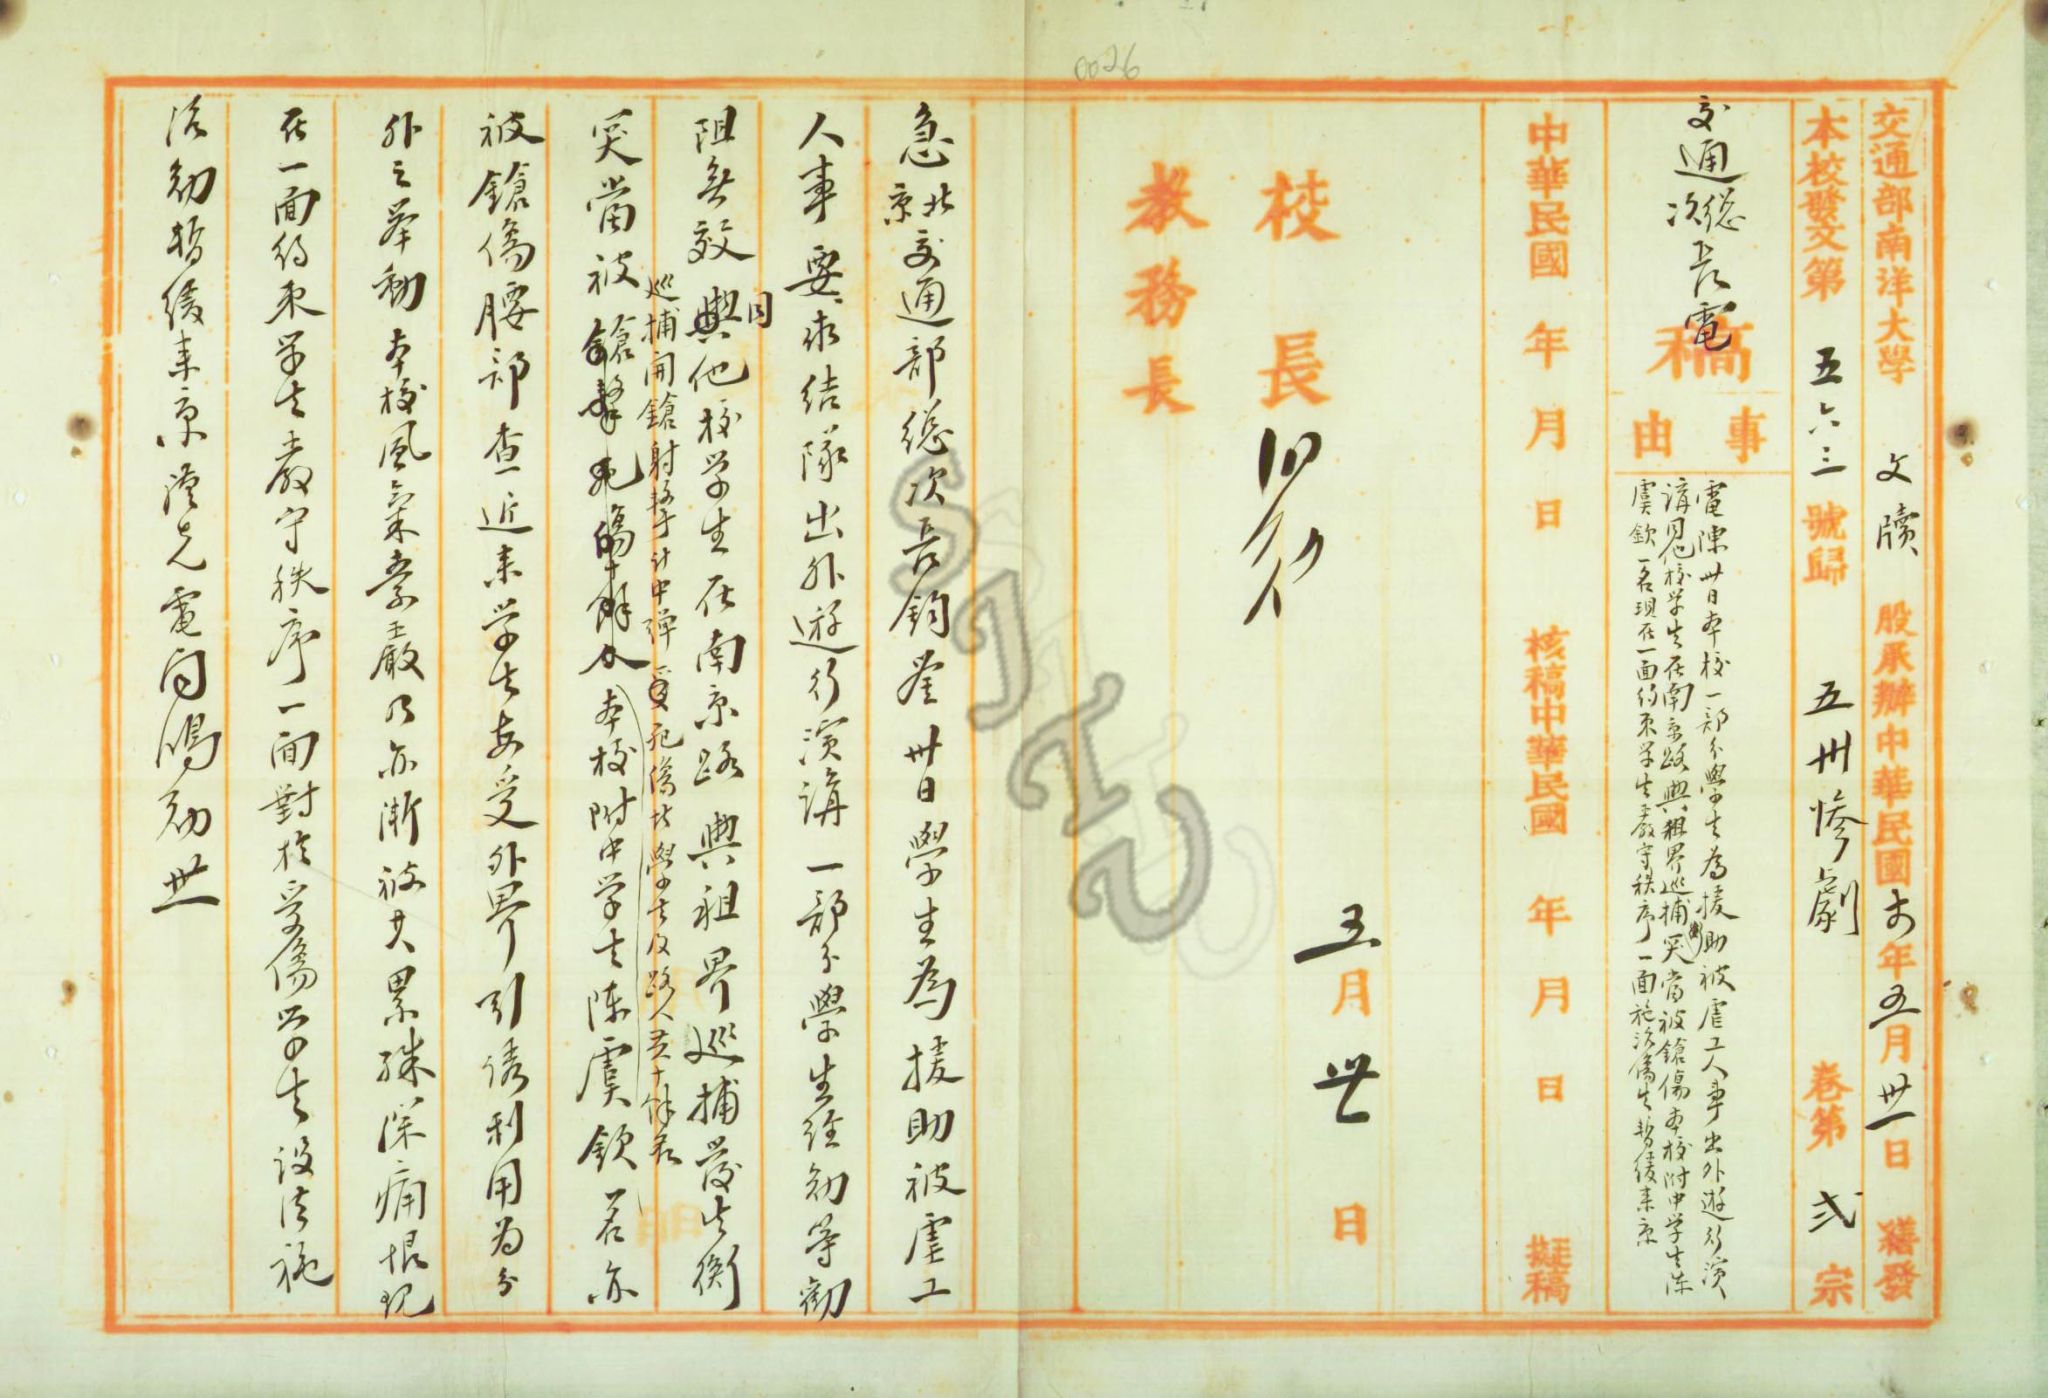 0026
交通部南洋大學 文牘 股承辦中華民國十四年五月卅一日 繕發
本校發文第 五六三 號歸 五卅慘劇 卷第 弍 宗
交通總次長電
稿
事由
電陳卅日本校一部分學生為援助被虐工人事出外遊行演
講同他校學生在南京路與租界巡捕衝突當被鎗傷本校附中學生陳
虞欽一名現在一面約束学生嚴守秩序一面施治傷生暫緩來京
中華民國 年 月 日 核稿中華民國 年 月 日 擬稿
校長
五月卅一日
教務長
急北京交通部總次長鈞鉴卅日學生為援助被虐工
人事要求结隊出外遊行演講一部分學生经勸等勸
阻無效同他校学生在南京路與祖界巡捕發生衝
巡捕开鎗射擊計中彈受死傷者學生及路人共十餘名
突當被本校附中学生陈虞欽一名亦
被鎗傷腰部查近来学生每受外界引诱利用為分
外之举動本校風氣素主嚴乃亦漸被其累殊深痛恨现
在一面约束学生嚴守秩序一面對於受傷学生設法施
治勋暫缓来京谨先電闻鸿勋卅一